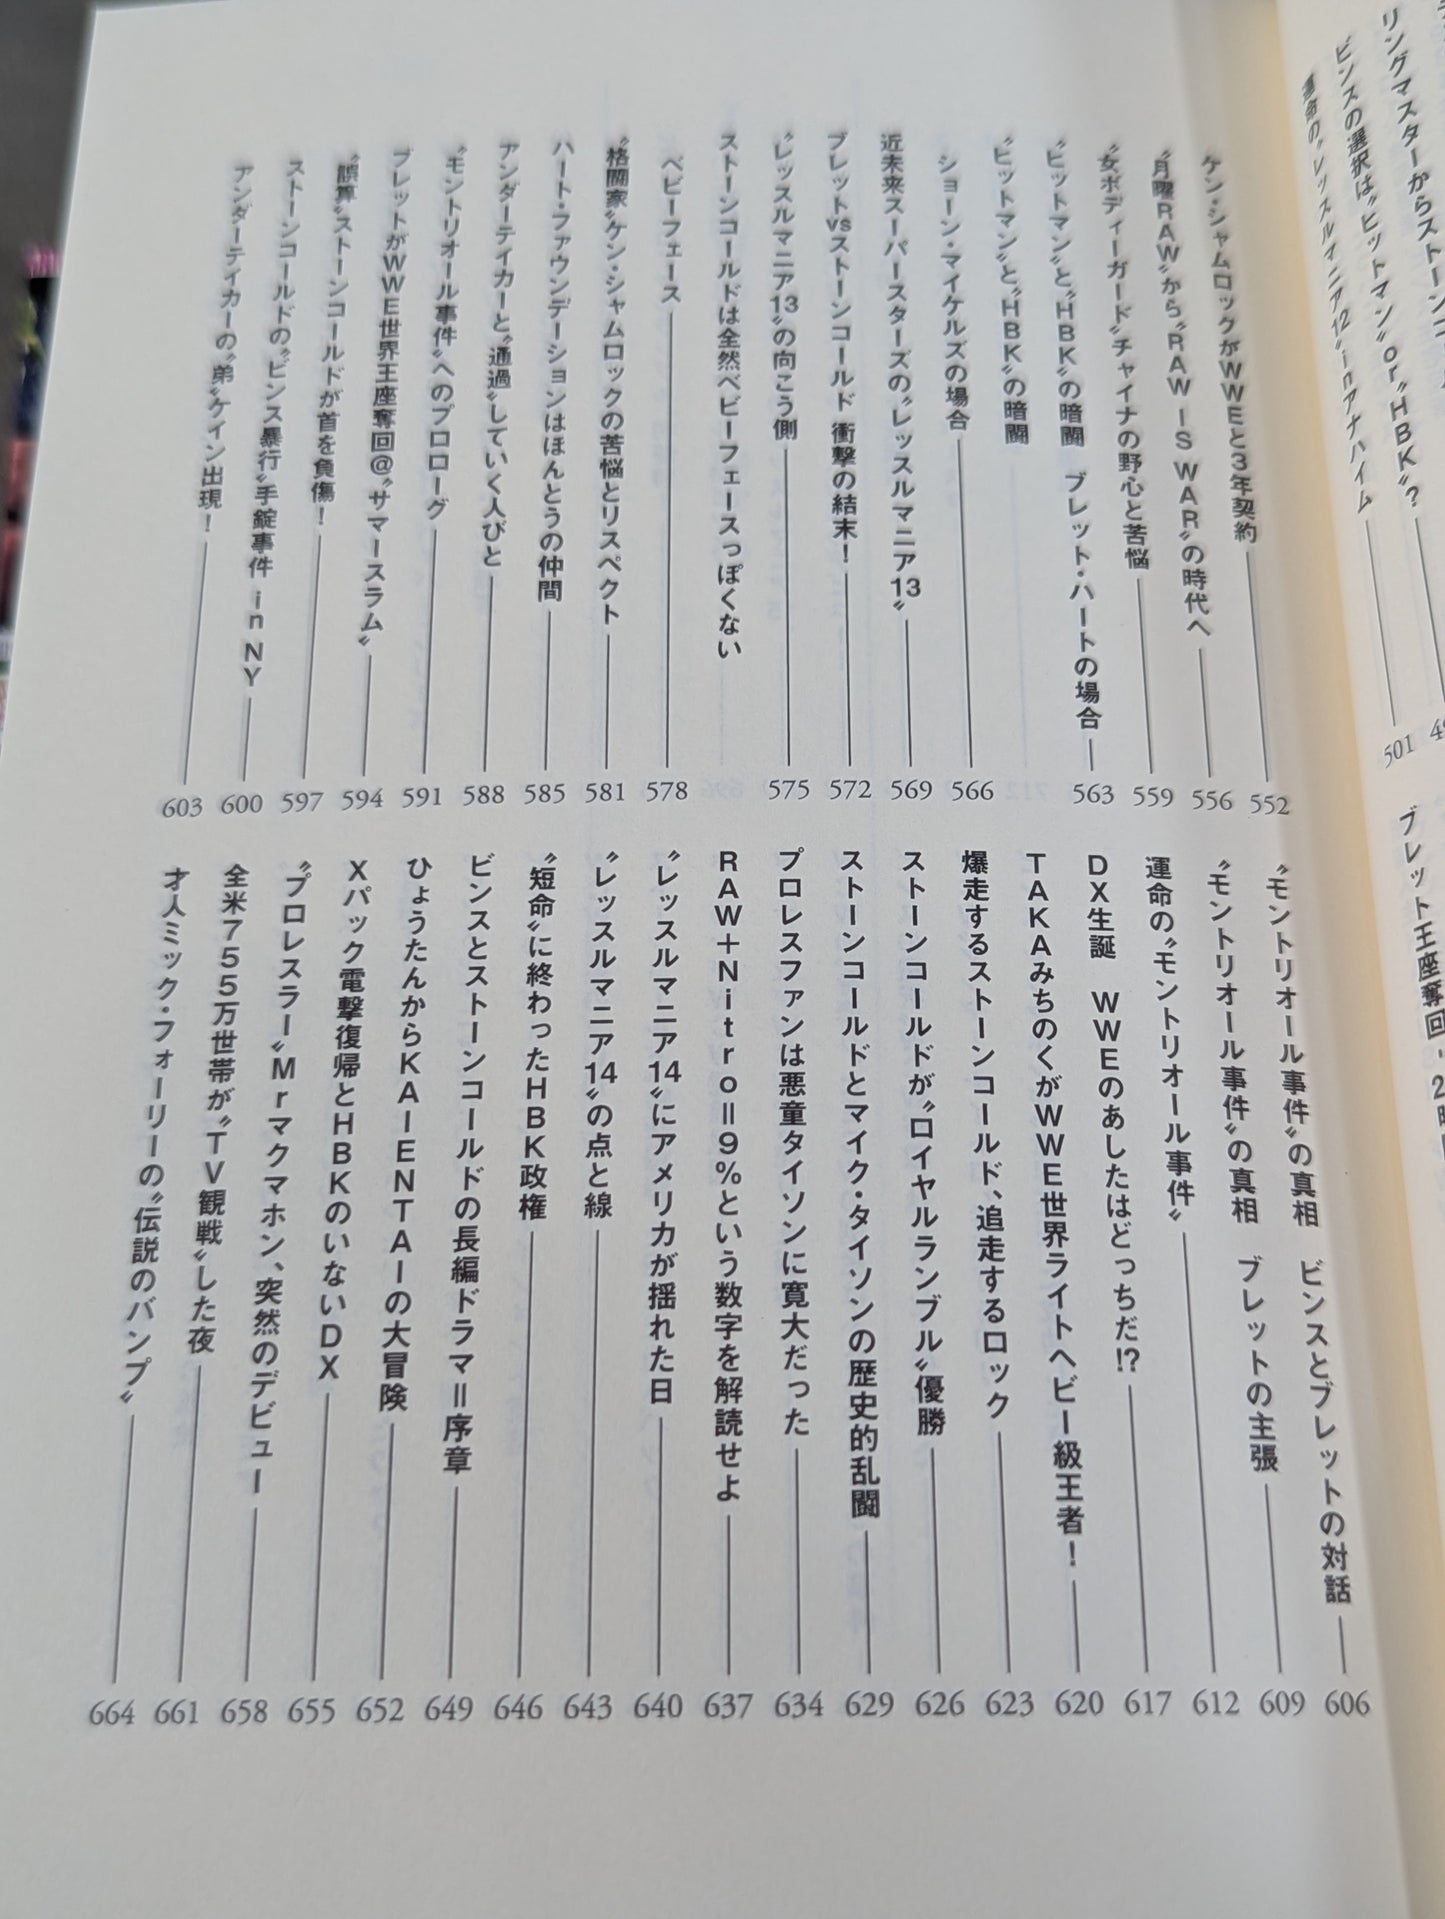 リングマスターからストーン
ビンスの選択は〝ヒットマン〟or〝HBK〟？
運命の〝レッスルマニア12〟inアナハイム 501
ブレット王座奪回
ケン・シャムロックがWWEと3年契約 552
〝月曜RAW〟から〝RAW IS WAR〟の時代へ 556
〝女ボディーガード〟チャイナの野心と苦悩 559
〝ヒットマン〟と〝HBK〟の暗闘　ブレット・ハートの場合 563
〝ヒットマン〟と〝HBK〟の暗闘
ショーン・マイケルズの場合 566
近未来スーパースターズの〝レッスルマニア13〟 569
ブレットvsストーンコールド 衝撃の結末！ 572
〝レッスルマニア13〟の向こう側 575
ストーンコールドは全然ベビーフェースっぽくない
ベビーフェース 578
〝格闘家〟ケン・シャムロックの苦悩とリスペクト 581
ハート・ファウンデーションはほんとうの仲間 585
アンダーテイカーと〝通過〟していく人びと 588
〝モントリオール事件〟へのプロローグ 591
ブレットがWWE世界王座奪回@〝サマースラム〟 594
〝誤算〟ストーンコールドが首を負傷！ 597
ストーンコールドの〝ビンス暴行〟手錠事件 in NY 600
アンダーテイカーの〝弟〟ケイン出現！ 603
〝モントリオール事件〟の真相　ビンスとブレットの対話 606
〝モントリオール事件〟の真相　ブレットの主張 609
運命の〝モントリオール事件〟 612
DX生誕　WWEのあしたはどっちだ!? 617
TAKAみちのくがWWE世界ライトヘビー級王者！ 620
爆走するストーンコールド、追走するロック 623
ストーンコールドが〝ロイヤルランブル〟優勝 626
ストーンコールドとマイク・タイソンの歴史的乱闘 629
プロレスファンは悪童タイソンに寛大だった 634
RAW＋Nitro＝9％という数字を解読せよ 637
〝レッスルマニア14〟にアメリカが揺れた日 640
〝レッスルマニア14〟の点と線 643
〝短命〟に終わったHBK政権 646
ビンスとストーンコールドの長編ドラマ＝序章 649
ひょうたんからKAIENTAIの大冒険 652
Xパック電撃復帰とHBKのいないDX 655
〝プロレスラー〟Mrマクマホン、突然のデビュー 658
全米755万世帯が〝TV観戦〟した夜 661
才人ミック・フォーリーの〝伝説のバンプ〟 664